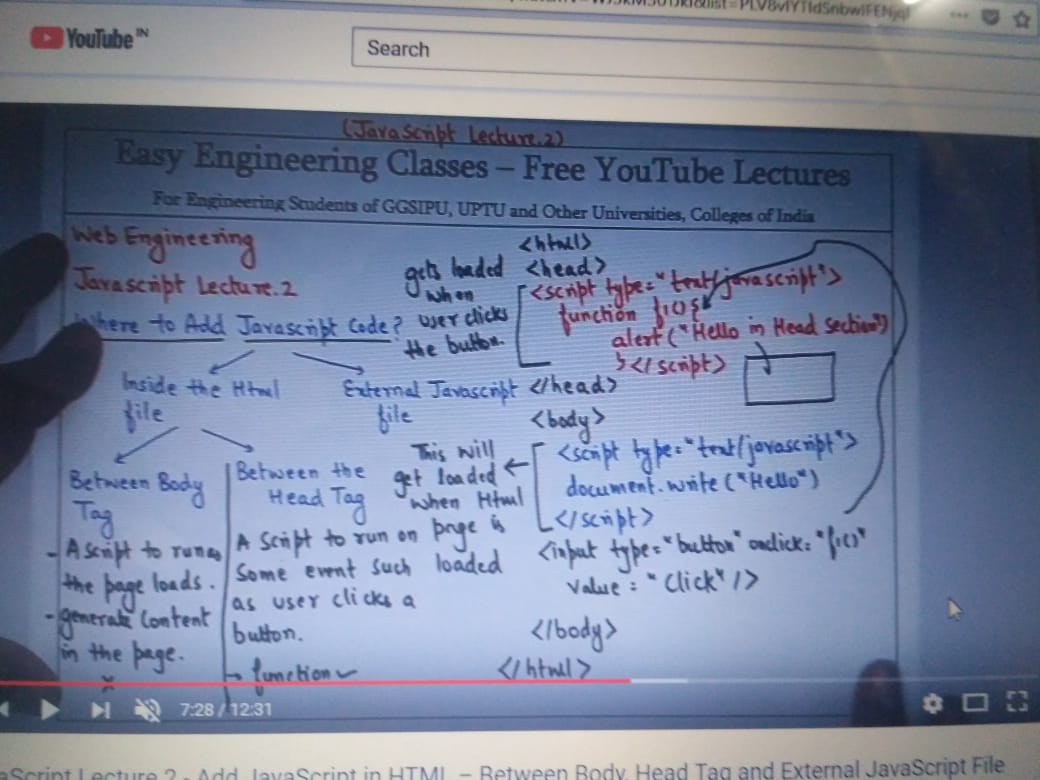 YouTube IN
Search
(JavaScript Lecture.2)
Easy Engineering Classes – Free YouTube Lectures
For Engineering Students of GGSIPU, UPTU and Other Universities, Colleges of India
Web Engineering
Javascript Lecture.2
Where to Add Javascript Code?
Inside the Html
file
External Javascript
file
Between Body
Tag
- A script to run as
the page loads.
- generate Content
in the page.
Between the
Head Tag
A Script to run on
Some event such
as user clicks a
button.
→ function
gets loaded
when
user clicks
the button.
<html>
<head>
<script type="text/javascript">
function f1(){
alert("Hello in Head section")
}</script>
</head>
<body>
This will
get loaded
when Html
page is
loaded
<script type="text/javascript">
document.write("Hello")
</script>
<input type="button" onclick="f1()"
value="Click"/>
</body>
</html>
7:28 / 12:31
Script Lecture 2 - Add JavaScript in HTML – Between Body, Head Tag and External JavaScript File